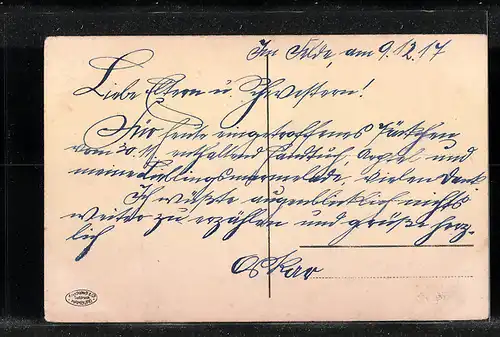 Im Felde, am 9.12.17
Liebe Eltern u. Schwestern!
Für heute eingetroffenes Päckchen
vom 30. 11. enthaltend Handtuch, Aepfel und
meine Lieblingsmarmelade, vielen Dank.
Ich wüßte augenblicklich nichts
weiter zu erzählen und grüße herz-
lich
Oskar